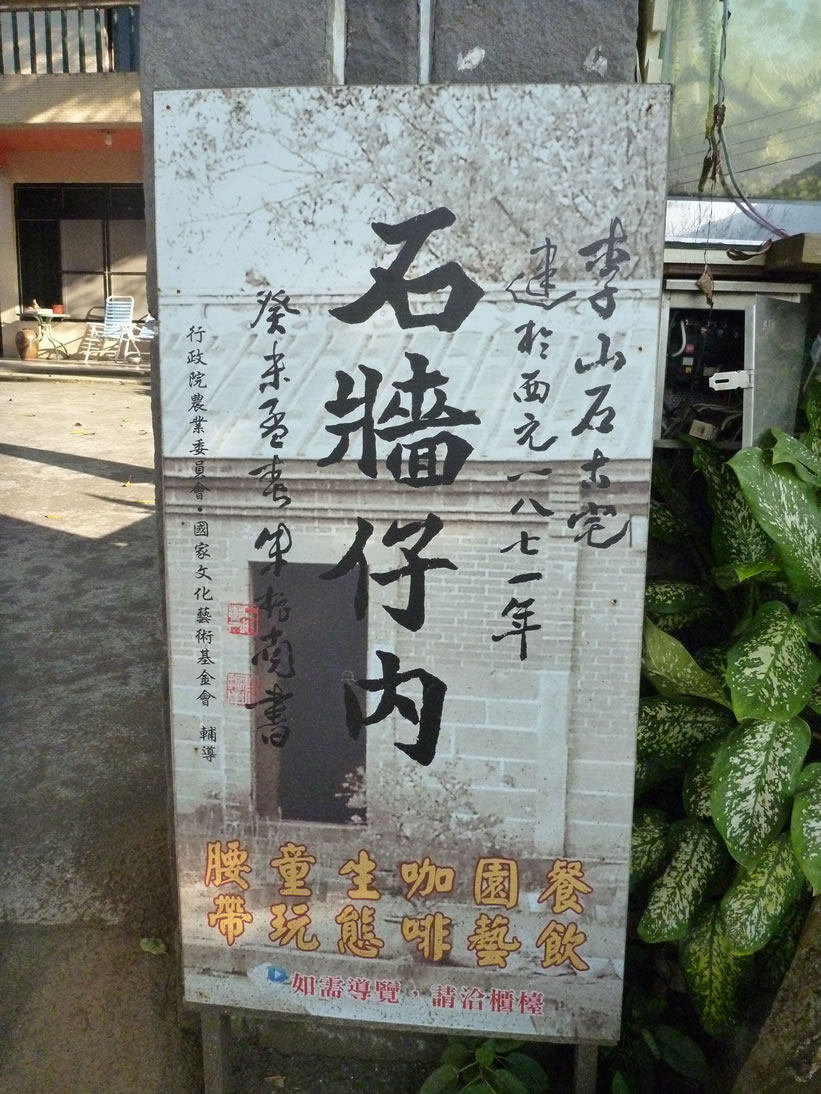 李山石古宅
建於西元一八七一年
石牆仔內
癸未孟春朱振南書
行政院農業委員會·國家文化藝術基金會 輔導
餐飲
園藝
咖啡
生態
童玩
腰帶
如需導覽，請洽櫃檯